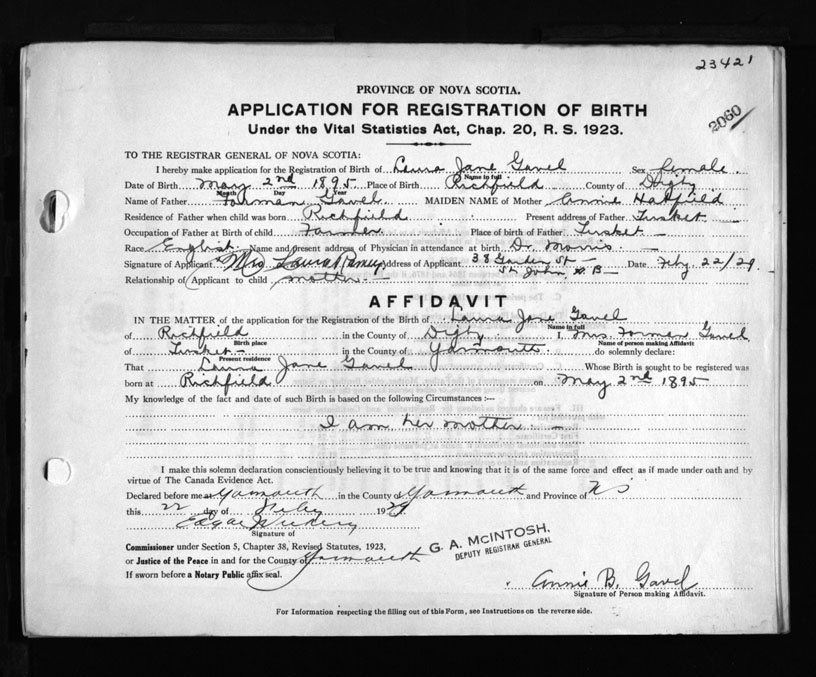 23421
PROVINCE OF NOVA SCOTIA.
2060
APPLICATION FOR REGISTRATION OF BIRTH
Under the Vital Statistics Act, Chap. 20, R. S. 1923.
TO THE REGISTRAR GENERAL OF NOVA SCOTIA:
I hereby make application for the Registration of Birth of Laura Jane Gavel Sex female
Name in full
Date of Birth May 2nd 1895 Place of Birth Richfield County of Digby
Month Day Year
Name of Father Forman Gavel MAIDEN NAME of Mother Annie Hatfield
Residence of Father when child was born Richfield Present address of Father Tusket
Occupation of Father at Birth of child Farmer Place of birth of Father Tusket
Race English Name and present address of Physician in attendance at birth Dr. Morris
Signature of Applicant Mrs Laura Address of Applicant 38 Garden St - Date Feby 22/29
St John N. B -
Relationship of Applicant to child mother
AFFIDAVIT
IN THE MATTER of the application for the Registration of the Birth of Laura Jane Gavel
Name in full
of Richfield in the County of Digby I, Mrs. Forman Gavel
Birth place Name of person making Affidavit
of Tusket in the County of Yarmouth do solemnly declare:
Present residence
That Laura Jane Gavel Whose Birth is sought to be registered was
born at Richfield on May 2nd 1895
My knowledge of the fact and date of such Birth is based on the following Circumstances :—
I am her mother. -
I make this solemn declaration conscientiously believing it to be true and knowing that it is of the same force and effect as if made under oath and by
virtue of The Canada Evidence Act.
Declared before me at Yarmouth in the County of Yarmouth and Province of N S
this 22 day of Feby 1929
Edgar
Signature of
Commissioner under Section 5, Chapter 38, Revised Statutes, 1923,
G. A. McINTOSH,
DEPUTY REGISTRAR GENERAL
or Justice of the Peace in and for the County of Yarmouth
If sworn before a Notary Public affix seal.
Annie B. Gavel
Signature of Person making Affidavit.
For Information respecting the filling out of this Form, see Instructions on the reverse side.